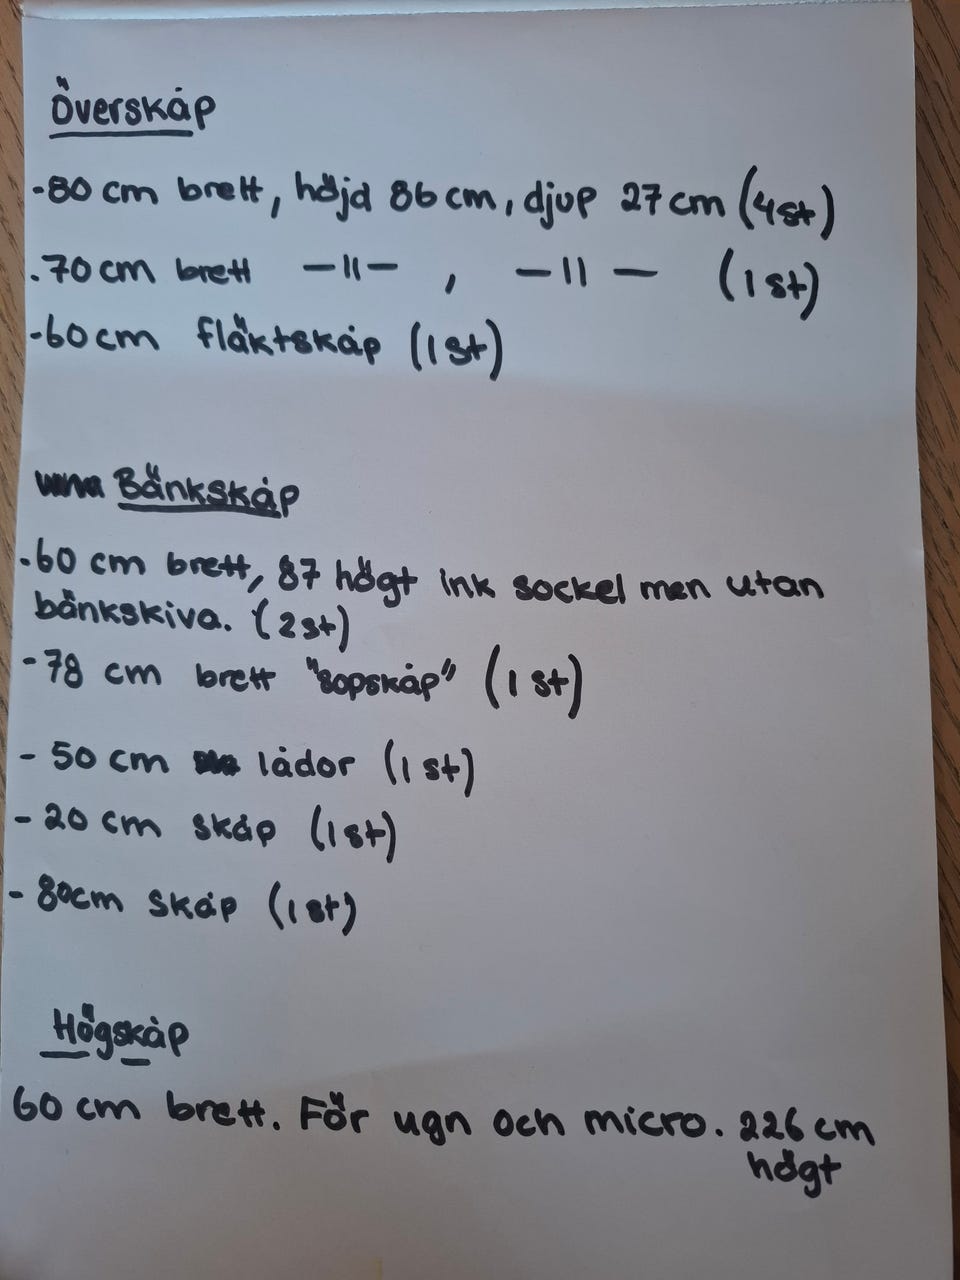 Överskåp
-80 cm brett, höjd 86 cm, djup 27 cm (4st)
.70 cm brett -11- , -11- (1 st)
-60 cm fläktskåp (1 st)
Bänkskåp
-60 cm brett, 87 högt ink sockel men utan
bänkskiva. (2 st)
-78 cm brett "sopskåp" (1 st)
- 50 cm lådor (1 st)
- 20 cm skåp (1 st)
- 80cm skåp (1 st)
Högskåp
60 cm brett. För ugn och micro. 226 cm
högt